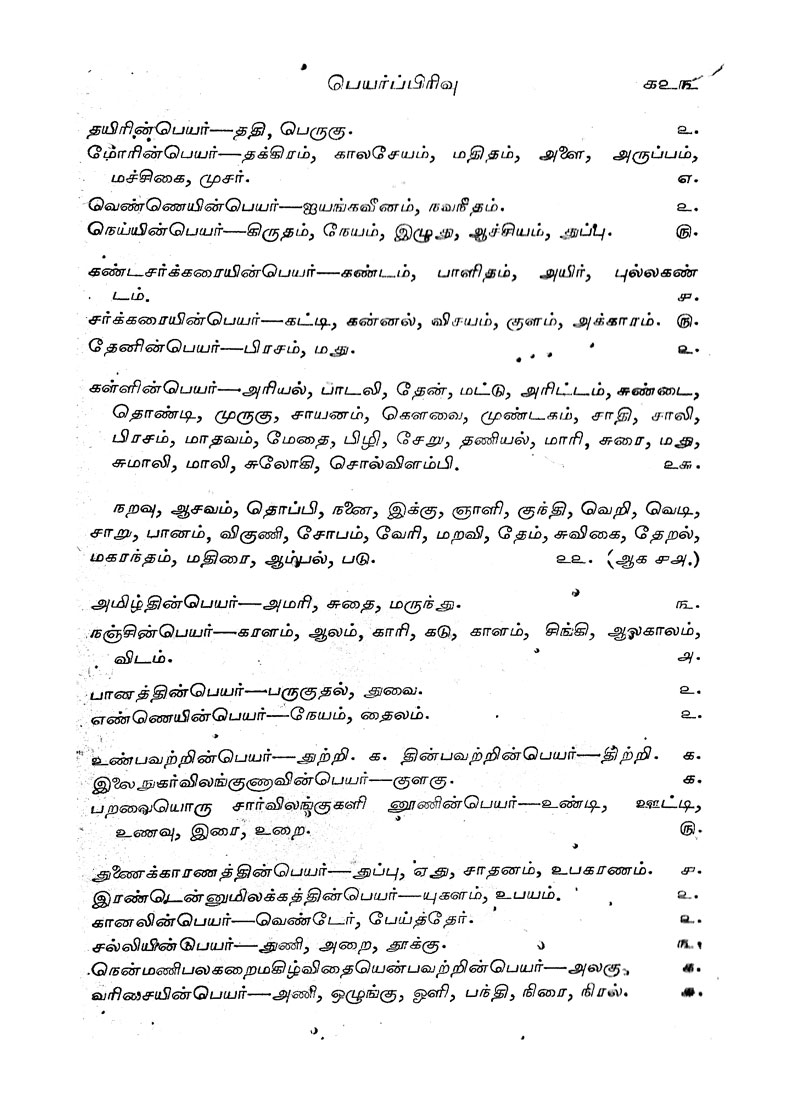 பெயர்ப்பிரிவு ௧௨௩
தயிரின்பெயர்—ததி, பெருகு. ௨.
மோரின்பெயர்—தக்கிரம், காலசேயம், மதிதம், அளை, அருப்பம்,
மச்சிகை, முசர். ௭.
வெண்ணெயின்பெயர்—ஐயங்கவீனம், நவநீதம். ௨.
நெய்யின்பெயர்—கிருதம், நேயம், இழுது, ஆச்சியம், துப்பு. ௫.
கண்டசர்க்கரையின்பெயர்—கண்டம், பாளிதம், அயிர், புல்லகண்
டம். ௪.
சர்க்கரையின்பெயர்—கட்டி, கன்னல், விசயம், குளம், அக்காரம். ௫.
தேனின்பெயர்—பிரசம், மது. ௨.
கள்ளின்பெயர்—அரியல், பாடலி, தேன், மட்டு, அரிட்டம், சுண்டை,
தொண்டி, முருகு, சாயனம், கௌவை, முண்டகம், சாதி, சாலி,
பிரசம், மாதவம், மேதை, பிழி, சேறு, தணியல், மாரி, சுரை, மது,
சுமாலி, மாலி, சுலோகி, சொல்விளம்பி. ௨௬.
நறவு, ஆசவம், தொப்பி, நனை, இக்கு, ஞாளி, குந்தி, வெறி, வெடி,
சாறு, பானம், விகுணி, சோபம், வேரி, மறவி, தேம், சுவிகை, தேறல்,
மகரந்தம், மதிரை, ஆம்பல், படு. ௨௨. (ஆக ௪௮.)
அமிழ்தின்பெயர்—அமரி, சுதை, மருந்து. ௩.
நஞ்சின்பெயர்—கரளம், ஆலம், காரி, கடு, காளம், சிங்கி, ஆலகாலம்,
விடம். ௮.
பானத்தின்பெயர்—பருகுதல், துவை. ௨.
எண்ணெயின்பெயர்—நேயம், தைலம். ௨.
உண்பவற்றின்பெயர்—துற்றி. ௧. தின்பவற்றின்பெயர்—திற்றி. ௧.
இலைநுகர்விலங்குணவின்பெயர்—குளகு. ௧.
பறவையொரு சார்விலங்குகளி னூணின்பெயர்—உண்டி, ஊட்டி,
உணவு, இரை, உறை. ௫.
துணைக்காரணத்தின்பெயர்—துப்பு, ஏது, சாதனம், உபகரணம். ௪.
இரண்டென்னுமிலக்கத்தின்பெயர்—யுகளம், உபயம். ௨.
கானலின்பெயர்—வெண்டேர், பேய்த்தேர். ௨.
சல்லியின்பெயர்—துணி, அறை, தூக்கு. ௩.
நென்மணிபலகறைமகிழ்விதையென்பவற்றின்பெயர்—அலகு, ௧.
வரிசையின்பெயர்—அணி, ஒழுங்கு, ஓளி, பந்தி, நிரை, நிரல்.